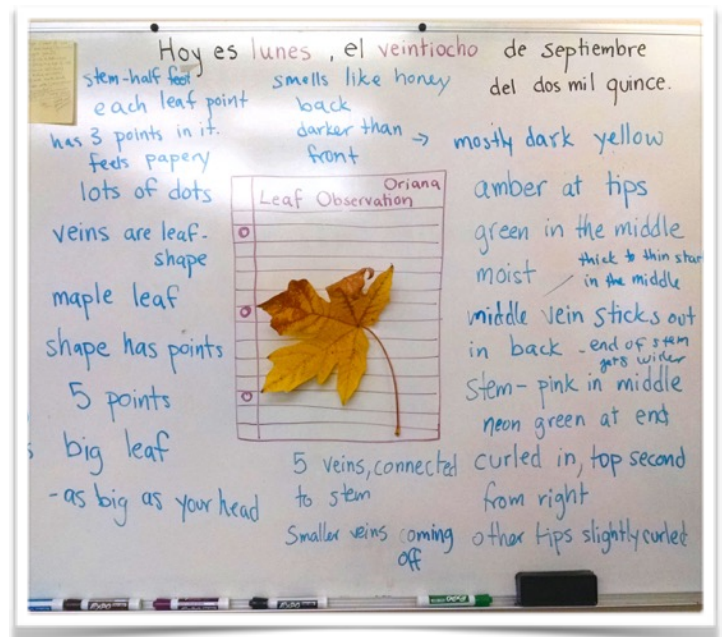 Hoy es lunes, el veintiocho de septiembre
del dos mil quince.
stem-half foot
each leaf point
has 3 points in it.
feels papery
lots of dots
veins are leaf-
shape
maple leaf
shape has points
5 points
big leaf
-as big as your head
smells like honey
back
darker than →
front
Oriana
Leaf Observation
5 veins, connected
to stem
Smaller veins coming
off
mostly dark yellow
amber at tips
green in the middle
moist
thick to thin star
in the middle
middle vein sticks out
in back - end of stem
gets wider
stem- pink in middle
neon green at end
curled in, top second
from right
other tips slightly curled
EXPO
EXPO
EXPO